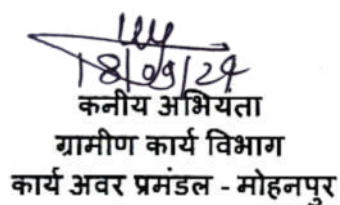 18/09/24
कनीय अभियता
ग्रामीण कार्य विभाग
कार्य अवर प्रमंडल - मोहनपुर